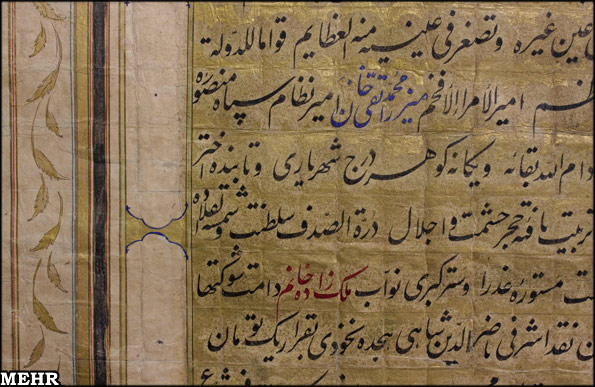 عین غیره و تصغر فی عینه منه العظایم قواما للدولة
ظم امیر الامراء الافخم میرزا محمد تقی خان امیر نظام سپاه منصوره
دام الله بقائه و یکانه کوهر درج شهریاری و تابنده اختر
تربیت یافته حجر حشمت و اجلال درة الصدف سلطنت و شمسه قلاده
ت مستوره عذرا و ستر کبری نواب ملک زاده خانم دامت شوکتها
ن نقد اشرفی ناصرالدین شاهی هجده نخودی بقرار یک تومان
MEHR